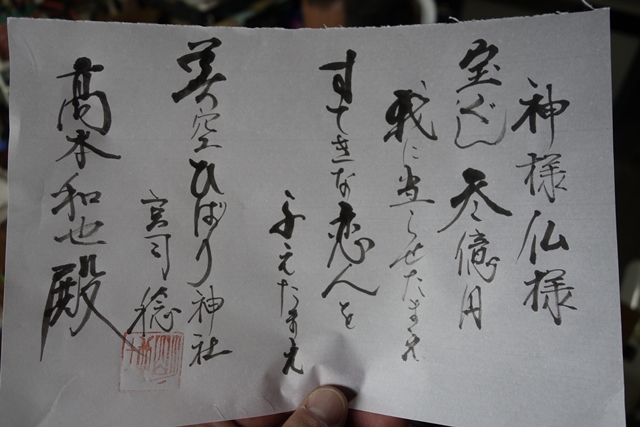 神様仏様
宝くじ 参億円
我に当らせたまえ
すてきな恋人を
与えたまえ
美空ひばり神社
宮司 稔
髙木和也殿